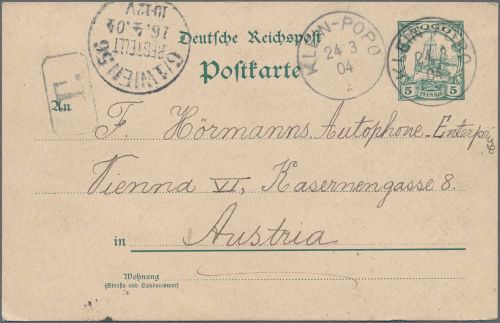 Deutsche Reichspost
Postkarte
TOGO
5 5
PFENNIG
KLEIN-POPO
24 3
04
KLEIN-POPO
04
6/1 WIEN 56
BESTELLT
16.4.04
An
F. Hörmanns Autophone-Enterprise
Vienna VI, Kasernengasse 8.
in Austria
Wohnung
(Straße und Hausnummer)